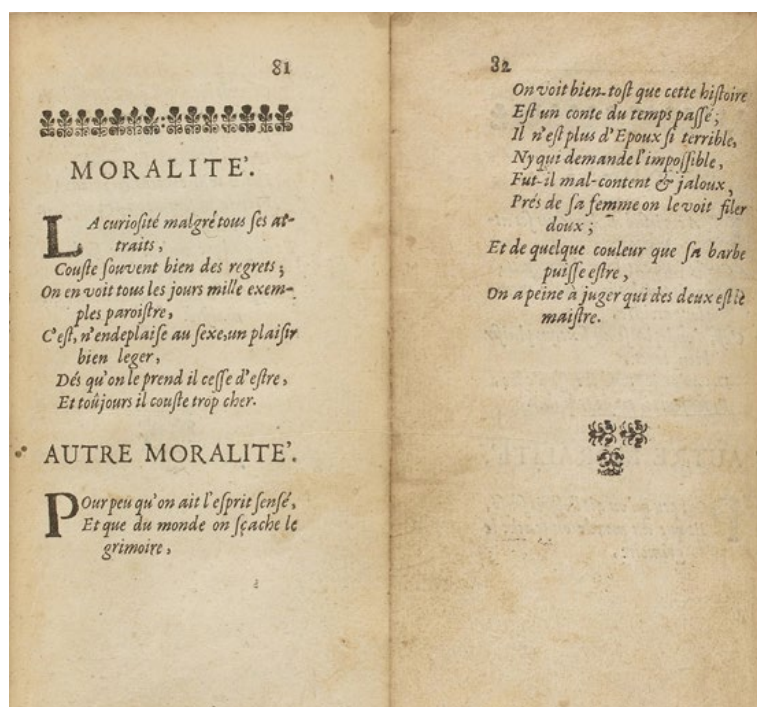 81
MORALITE'.
LA curiosité malgré tous ses at-
traits,
Couste souvent bien des regrets;
On en voit tous les jours mille exem-
ples paroistre,
C'est, n'endeplaise au sexe, un plaisir
bien leger,
Dés qu'on le prend il cesse d'estre,
Et toûjours il couste trop cher.
AUTRE MORALITE'.
POur peu qu'on ait l'esprit sensé,
Et que du monde on sçache le
grimoire,
82
On voit bien-tost que cette histoire
Est un conte du temps passé;
Il n'est plus d'Epoux si terrible,
Ny qui demande l'impossible,
Fut-il mal-content & jaloux,
Prés de sa femme on le voit filer
doux;
Et de quelque couleur que sa barbe
puisse estre,
On a peine à juger qui des deux est le
maistre.